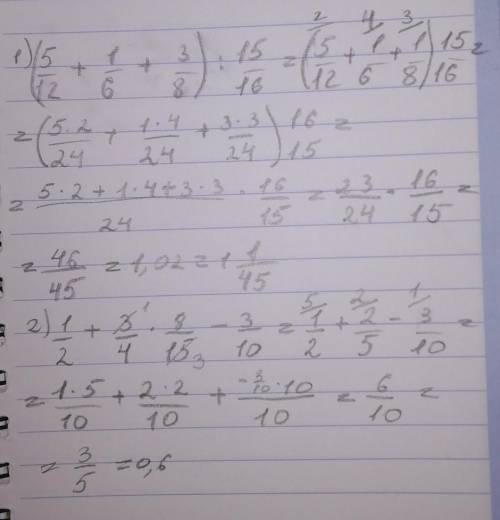 1) (5/12 + 1/6 + 3/8) : 15/16 = (²/5/12 + ⁴/1/6 + ³/1/8) 15/16 =
= (5·2/24 + 1·4/24 + 3·3/24) 16/15 =
= 5·2+1·4+3·3/24 · 16/15 = 23/24 · 16/15 =
= 46/45 = 1,02 = 1 1/45
2) 1/2 + 3¹/4 · 8/15₃ − 3/10 = ⁵/1/2 + ²/2/5 − ¹/3/10 =
= 1·5/10 + 2·2/10 + −3/10·10/10 = 6/10 =
= 3/5 = 0,6